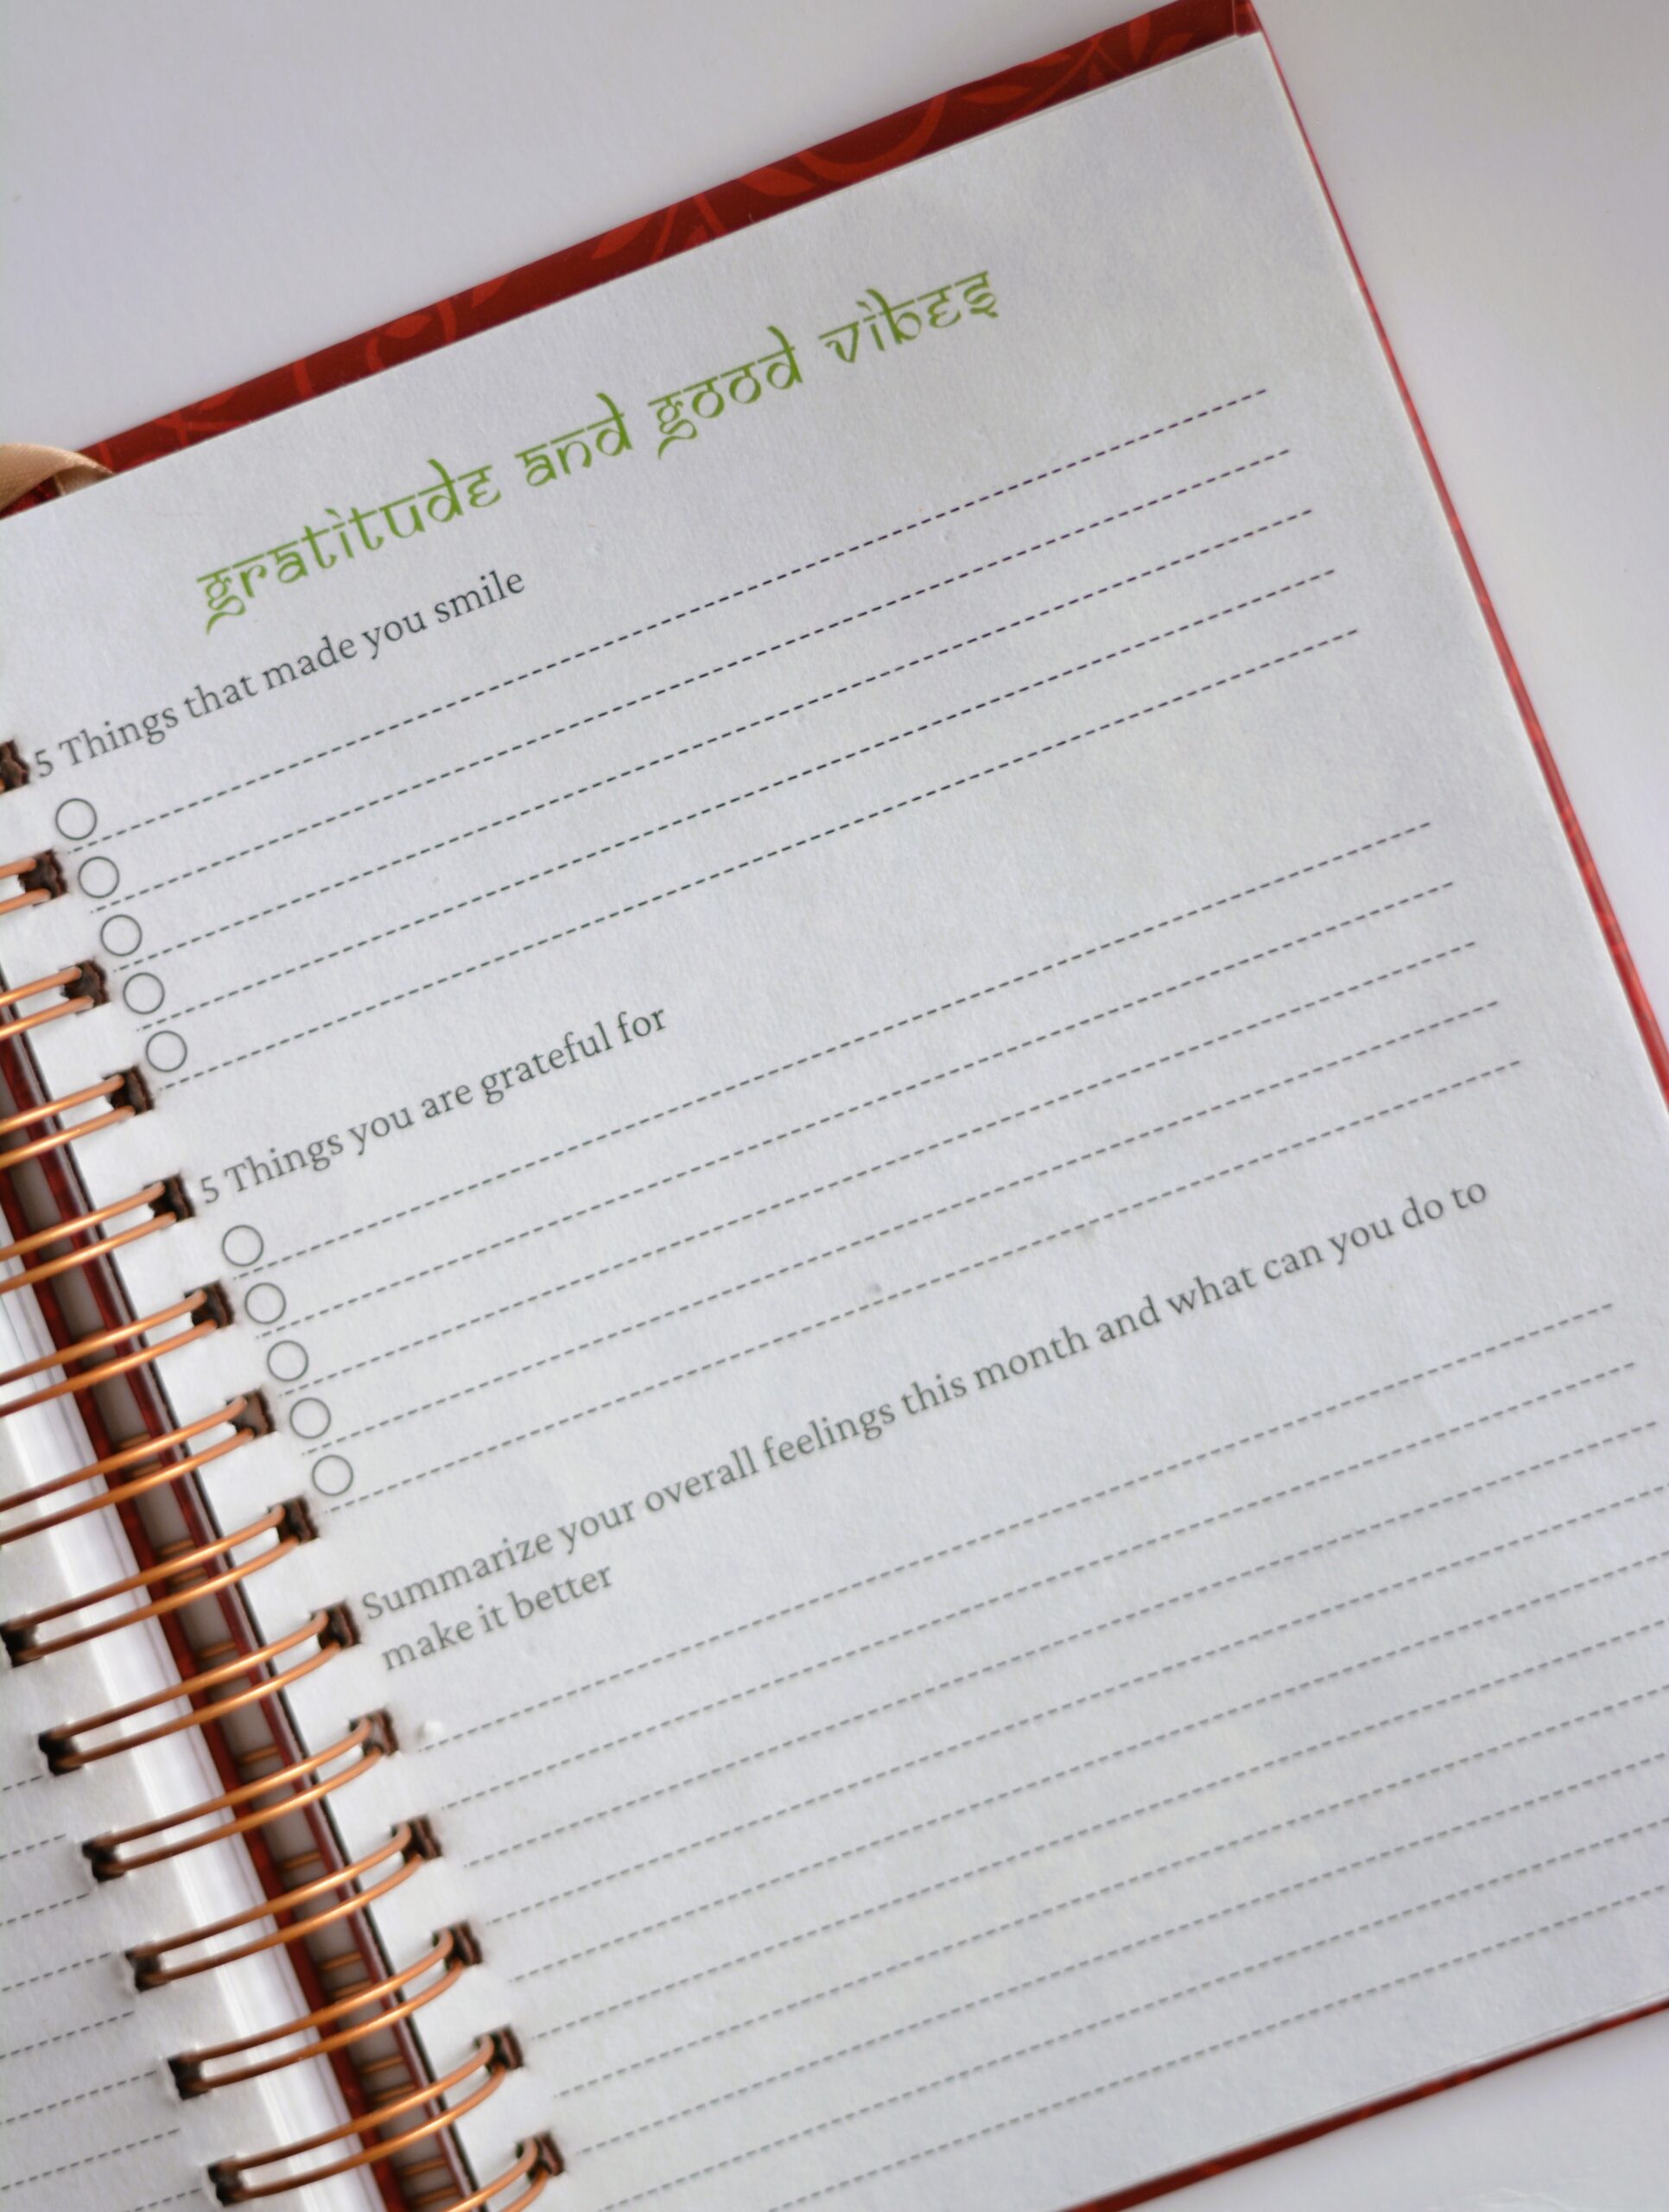 gratitude and good vibes
5 Things that made you smile
5 Things you are grateful for
Summarize your overall feelings this month and what can you do to
make it better